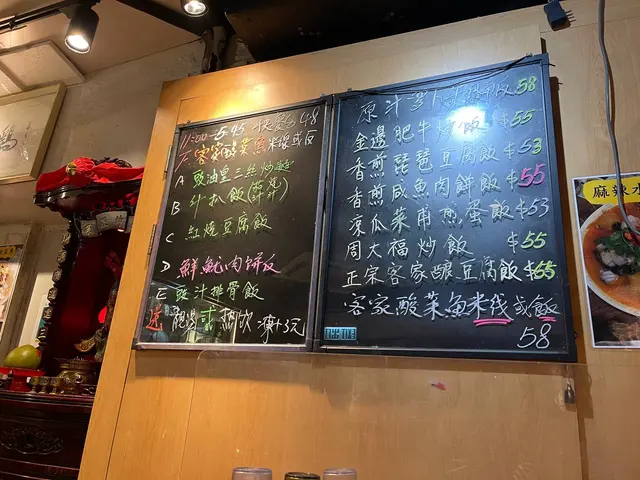 11:00-5:45 快餐 $48
F 客家酸菜魚米線或反
A 豉油皇三丝炒麵
B 汁扒飯
C 紅燒豆腐飯
D 鮮魷肉饼反
E 豉汁排骨飯
送 熱飲 凍+3元
原汁 58
金邊肥牛炒飯 $55
香煎琵琶豆腐飯 $53
香煎咸魚肉餅飯 $55
凉瓜菜甫煎蛋飯 $53
周大福炒飯 $55
正宗客家釀豆腐飯 $55
客家酸菜魚米线或飯
58
麻辣水